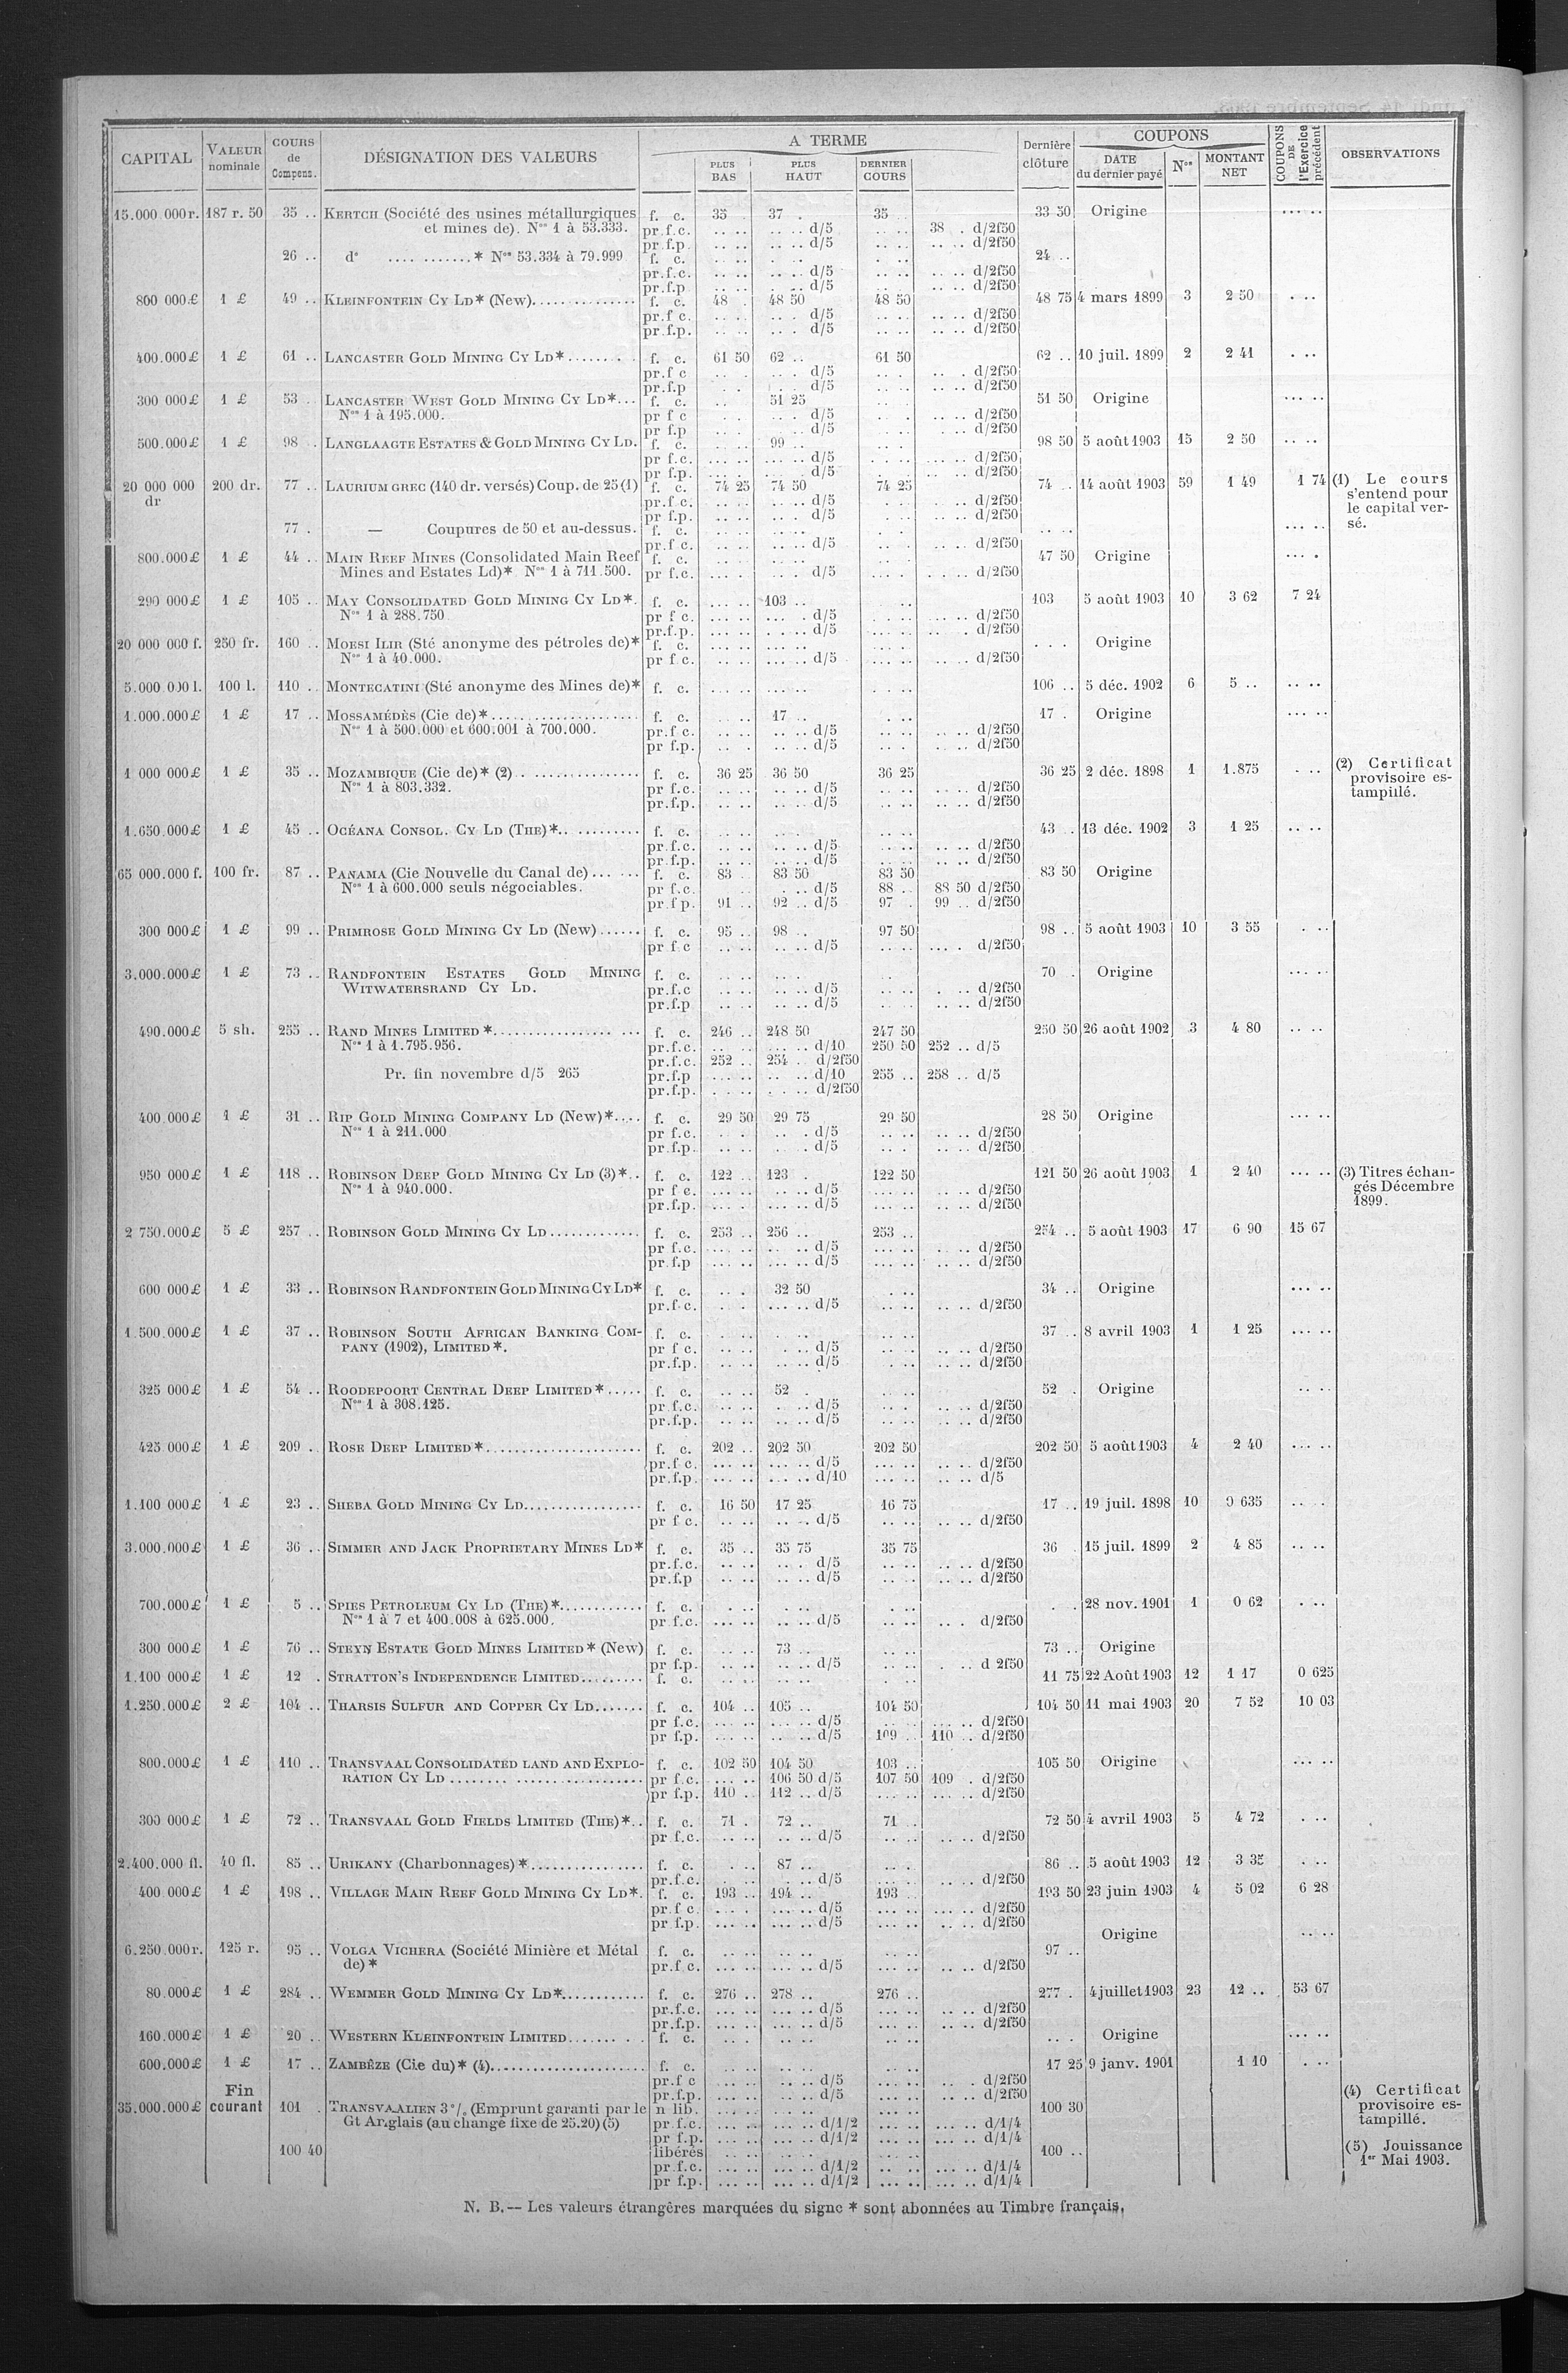 CAPITAL | VALEUR nominale | COURS de Compens. | DÉSIGNATION DES VALEURS | A TERME | PLUS BAS | PLUS HAUT | DERNIER COURS | Dernière clôture | COUPONS | DATE du dernier payé | Nos | MONTANT NET | COUPONS DE l'Exercice précédent | OBSERVATIONS
15.000 000 r. 187 r. 50 35 .. KERTCH (Société des usines métallurgiques f. c. 35 . 37 . 35 .. 33 50 Origine ... ..
et mines de). Nos 1 à 53.333. pr.f.c. .. .. .. .. d/5 .. .. 38 . d/2f50
pr f.p. .. .. .. .. d/5 .. .. .. .. d/2f50
26 .. do .... .......* Nos 53.334 à 79.999 f. c. 24 ..
pr.f.c. .. .. .. .. d/5 .. .. .. .. d/2f50
pr.f.p .. .. .. .. d/5 .. .. .. .. d/2f50
800 000 £ 1 £ 49 .. KLEINFONTEIN CY LD* (New).............. f. c. 48 . 48 50 48 50 48 75 4 mars 1899 3 2 50 . ..
pr.f c. .. .. .. . d/5 .. .. .. .. d/2f50
pr.f.p. .. .. .. . d/5 .. .. .. .. d/2f50
400.000 £ 1 £ 61 .. LANCASTER GOLD MINING CY LD*........ f. c. 61 50 62 .. 61 50 62 .. 10 juil. 1899 2 2 41 . ..
pr.f c .. . .. . d/5 .. . .. . d/2f50
pr.f.p . . . . d/5 .. . .. .. d/2f50
300 000 £ 1 £ 53 . LANCASTER WEST GOLD MINING CY LD*... f. c. .. 51 25 51 50 Origine ... ..
Nos 1 à 195.000. pr f c .. . .. . d/5 . .. .. .. d/2f50
pr f.p .. . .. d/5 . .. . .. d/2f50
500.000 £ 1 £ 98 . LANGLAAGTE ESTATES & GOLD MINING CY LD. f. c. 99 .. 98 50 5 août 1903 15 2 50 .. ..
pr f.c. ... .. ... .. d/5 ... .. .. .. d/2f50
pr f.p. ... .. ... .. d/5 ... .. .. .. d/2f50
20 000 000 dr 200 dr. 77 .. LAURIUM GREC (140 dr. versés) Coup. de 25 (1) f. c. 74 25 74 50 74 25 74 .. 14 août 1903 59 1 49 1 74 (1) Le cours
pr.f c. .. .. .. .. d/5 . .. .. d/2f50 s'entend pour
pr f.p. .. .. .. . d/5 . .. .. d/2f50 le capital ver-
77 . — Coupures de 50 et au-dessus. f. c. .. .. ... .. sé.
pr.f c. .. .. .. .. d/5 .. .. .. .. d/2f50
800.000 £ 1 £ 44 .. MAIN REEF MINES (Consolidated Main Reef f. c. 47 50 Origine ... .
Mines and Estates Ld)* Nos 1 à 711.500. pr f.c. ... . .. . d/5 ... . . . .. d/2f50
290 000 £ 1 £ 105 .. MAY CONSOLIDATED GOLD MINING CY LD*. f. c. ... .. 103 .. .. 103 5 août 1903 10 3 62 7 24
Nos 1 à 288.750 pr f c. ... .. ... . d/5 . .. .. .. .. d/2f50
pr.f.p. ... .. . .. .. d/5 ... .. .. . d/2f50
20 000 000 f. 250 fr. 160 .. MOESI ILIR (Sté anonyme des pétroles de)* f. c. ... .. ... .. ... .. . . . Origine
Nos 1 à 40.000. pr f c. .. .. ... .. d/5 .. .. .. . d/2f50
5.000.000 l. 100 l. 110 .. MONTECATINI (Sté anonyme des Mines de)* f. c. ... .. ... .. .. .. 106 .. 5 déc. 1902 6 5 .. .. ..
1.000.000 £ 1 £ 17 .. MOSSAMÉDÈS (Cie de)*..................... f. c. .. .. 17 .. . .. 17 . Origine ... ..
Nos 1 à 500.000 et 600.001 à 700.000. pr.f c. .. .. .. .. d/5 .. .. .. .. d/2f50
pr f.p. .. . .. .. d/5 .. .. . .. d/2f50
1 000 000 £ 1 £ 35 .. MOZAMBIQUE (Cie de)* (2) . ............... f. c. 36 25 36 50 36 25 36 25 2 déc. 1898 1 1.875 . .. (2) Certificat
Nos 1 à 803.332. pr f.c. .. .. .. .. d/5 .. .. .. .. d/2f50 provisoire es-
pr.f.p. .. .. .. .. d/5 .. .. .. .. d/2f50 tampillé.
1.650.000 £ 1 £ 45 .. OCÉANA CONSOL. CY LD (THE)*.. ......... f. c. .. .. .. . .. .. 43 . 13 déc. 1902 3 1 25 .. ..
pr.f.c. .. .. .. .. d/5 .. .. .. .. d/2f50
pr.f.p. .. .. .. .. d/5 .. .. .. .. d/2f50
65 000.000 f. 100 fr. 87 .. PANAMA (Cie Nouvelle du Canal de) ... ... f. c. 83 . 83 50 83 50 83 50 Origine
Nos 1 à 600.000 seuls négociables. pr f.c. . .. d/5 88 .. 88 50 d/2f50
pr.f p. 91 .. 92 .. d/5 97 . 99 .. d/2f50
300 000 £ 1 £ 99 .. PRIMROSE GOLD MINING CY LD (New)...... f. c. 95 .. 98 .. 97 50 98 .. 5 août 1903 10 3 55 . ..
pr f c .. .. .. .. d/5 .. .. ... . d/2f50
3.000.000 £ 1 £ 73 .. RANDFONTEIN ESTATES GOLD MINING f. c. .. .. .. . .. . 70 . Origine ... ..
WITWATERSRAND CY LD. pr.f.c .. .. .. .. d/5 .. .. . .. d/2f50
pr.f.p .. .. .. .. d/5 .. . .. .. d/2f50
490.000 £ 5 sh. 255 .. RAND MINES LIMITED *................. ... f. c. 246 .. 248 50 247 50 250 50 26 août 1902 3 4 80 .. ..
Nos 1 à 1.795.956. pr.f.c. .. .. ... .. d/10 250 50 252 .. d/5
pr.f.c. 252 .. 254 . d/2f50
Pr. fin novembre d/5 265 pr.f.p ... .. .. .. d/10 255 .. 258 .. d/5
pr.f.p. . .. . . .. .. d/2f50
400.000 £ 1 £ 31 .. RIP GOLD MINING COMPANY LD (New)*.... f. c. 29 50 29 75 29 50 28 50 Origine ... ..
Nos 1 à 211.000 pr f.c. .. . .. . d/5 .. .. .. .. d/2f50
pr.f.p. .. .. .. . d/5 .. . .. .. d/2f50
950 000 £ 1 £ 118 .. ROBINSON DEEP GOLD MINING CY LD (3)*.. f. c. 122 .. 123 . 122 50 121 50 26 août 1903 1 2 40 ... .. (3) Titres échan-
Nos 1 à 940.000. pr f c. ... .. .. .. d/5 ... .. .. .. d/2f50 gés Décembre
pr.f.p. ... .. ... .. d/5 ... .. .. .. d/2f50 1899.
2 750.000 £ 5 £ 257 .. ROBINSON GOLD MINING CY LD............. f. c. 253 .. 256 .. 253 .. 254 .. 5 août 1903 17 6 90 15 67
pr f.c. ... .. .. .. d/5 ... .. .. .. d/2f50
pr.f.p ... .. ... .. d/5 ... .. .. .. d/2f50
600 000 £ 1 £ 33 .. ROBINSON RANDFONTEIN GOLD MINING CY LD* f. c. .. . 32 50 . .. 34 .. Origine ... ..
pr.f.c. .. .. ... .. d/5 .. .. .. .. d/2f50
1.500.000 £ 1 £ 37 .. ROBINSON SOUTH AFRICAN BANKING COM- f. c. . .. .. . .. .. 37 .. 8 avril 1903 1 1 25 ... ..
PANY (1902), LIMITED *. pr f c. .. .. . .. d/5 .. .. .. .. d/2f50
pr.f.p. .. .. .. .. d/5 . .. .. .. d/2f50
325 000 £ 1 £ 54 .. ROODEPOORT CENTRAL DEEP LIMITED *..... f. c. .. .. 52 . .. .. 52 . Origine .. ..
Nos 1 à 308.125. pr.f.c. .. .. . .. d/5 .. .. .. .. d/2f50
pr.f.p. .. .. .. .. d/5 .. .. .. .. d/2f50
425 000 £ 1 £ 209 .. ROSE DEEP LIMITED *...................... f. c. 202 .. 202 50 202 50 202 50 5 août 1903 4 2 40 ... ..
pr.f c. ... .. ... .. d/5 ... .. .. .. d/2f50
pr.f.p. ... .. ... .. d/10 ... .. .. .. d/5
1.100 000 £ 1 £ 23 .. SHEBA GOLD MINING CY LD................. f. c. 16 50 17 25 16 75 17 .. 19 juil. 1898 10 0 635 .. ..
pr f c. .. .. .. .. d/5 .. .. .. .. d/2f50
3.000.000 £ 1 £ 36 .. SIMMER AND JACK PROPRIETARY MINES LD* f. c. 35 .. 35 75 35 75 36 . 15 juil. 1899 2 4 85 .. ..
pr.f.c. .. .. .. . d/5 .. .. .. .. d/2f50
pr.f.p .. .. .. .. d/5 .. .. .. .. d/2f50
700.000 £ 1 £ 5 .. SPIES PETROLEUM CY LD (THE)*............ f. c. . .. . .. . .. . . 28 nov. 1901 1 0 62 . ..
Nos 1 à 7 et 400.008 à 625.000. pr f.c. ... .. .. .. d/5 .. .. .. . d/2f50
300 000 £ 1 £ 76 .. STEYN ESTATE GOLD MINES LIMITED * (New) f. c. .. .. 73 .. .. .. 73 .. Origine
pr f.p. .. .. .. .. d/5 .. .. . .. d 2f50
1.100 000 £ 1 £ 12 . STRATTON'S INDEPENDENCE LIMITED......... f. c. .. .. .. .. . .. 11 75 22 Août 1903 12 1 17 0 625
1.250.000 £ 2 £ 104 .. THARSIS SULFUR AND COPPER CY LD....... f. c. 104 .. 105 .. 104 50 104 50 11 mai 1903 20 7 52 10 03
pr f.c. ... .. ... .. d/5 .. .. ... .. d/2f50
pr f.p. ... .. ... .. d/5 109 .. 110 .. d/2f50
800.000 £ 1 £ 110 .. TRANSVAAL CONSOLIDATED LAND AND EXPLO- f. c. 102 50 104 50 103 .. 105 50 Origine ... ..
RATION CY LD ........ .................... pr f.c. ... .. 106 50 d/5 107 50 109 . d/2f50
pr f.p. 110 .. 112 .. d/5 ... .. ... .. d/2f50
300 000 £ 1 £ 72 .. TRANSVAAL GOLD FIELDS LIMITED (THE)*.. f. c. 71 . 72 .. 71 .. 72 50 4 avril 1903 5 4 72 . ..
pr f.c. .. .. .. .. d/5 .. .. .. .. d/2f50
2.400.000 fl. 40 fl. 85 .. URIKANY (Charbonnages)*................. f. c. . .. 87 .. .. . 86 .. 5 août 1903 12 3 35 . ..
pr.f.c. . .. .. d/5 .. .. .. .. d/2f50
400 000 £ 1 £ 198 .. VILLAGE MAIN REEF GOLD MINING CY LD*. f. c. 193 .. 194 .. 193 .. 193 50 23 juin 1903 4 5 02 6 28
pr.f c. .. . ... .. d/5 ... .. ... .. d/2f50
pr f.p. ... .. ... .. d/5 ... .. .. .. d/2f50
6.250.000 r. 125 r. 95 .. VOLGA VICHERA (Société Minière et Métal f. c. .. .. .. .. .. .. 97 .. Origine .. ..
de)* pr.f c. ... .. ... .. d/5 ... .. .. .. d/2f50
80.000 £ 1 £ 284 .. WEMMER GOLD MINING CY LD*............ f. c. 276 .. 278 .. 276 .. 277 . 4 juillet 1903 23 12 .. 53 67
pr.f.c. ... .. ... .. d/5 ... .. .. .. d/2f50
pr.f.p. ... .. ... .. d/5 ... .. .. .. d/2f50
160.000 £ 1 £ 20 .. WESTERN KLEINFONTEIN LIMITED....... . . f. c. .. . .. .. .. .. .. . Origine ... ..
600.000 £ 1 £ 17 .. ZAMBÈZE (Cie du)* (4)...................... f. c. .. .. .. .. .. .. 17 25 9 janv. 1901 1 10 . ..
pr.f c .. .. .. .. d/5 ... .. .. . d/2f50
Fin pr.f.p. .. .. .. .. d/5 ... .. .. .. d/2f50 (4) Certificat
35.000.000 £ courant 101 . TRANSVAALIEN 3 % (Emprunt garanti par le n lib. ... .. ... .. ... .. 100 30 provisoire es-
Gt Anglais (au change fixe de 25.20) (5) pr f.c. ... .. ... .. d/1/2 ... .. ... .. d/1/4 tampillé.
pr f.p. ... .. ... .. d/1/2 ... .. ... .. d/1/4
100 40 libérés ... .. ... .. 100 .. (5) Jouissance
pr.f.c. ... .. ... .. d/1/2 .. .. ... .. d/1/4 1er Mai 1903.
pr f.p. ... .. ... .. d/1/2 ... .. ... .. d/1/4
N. B.— Les valeurs étrangères marquées du signe * sont abonnées au Timbre français.